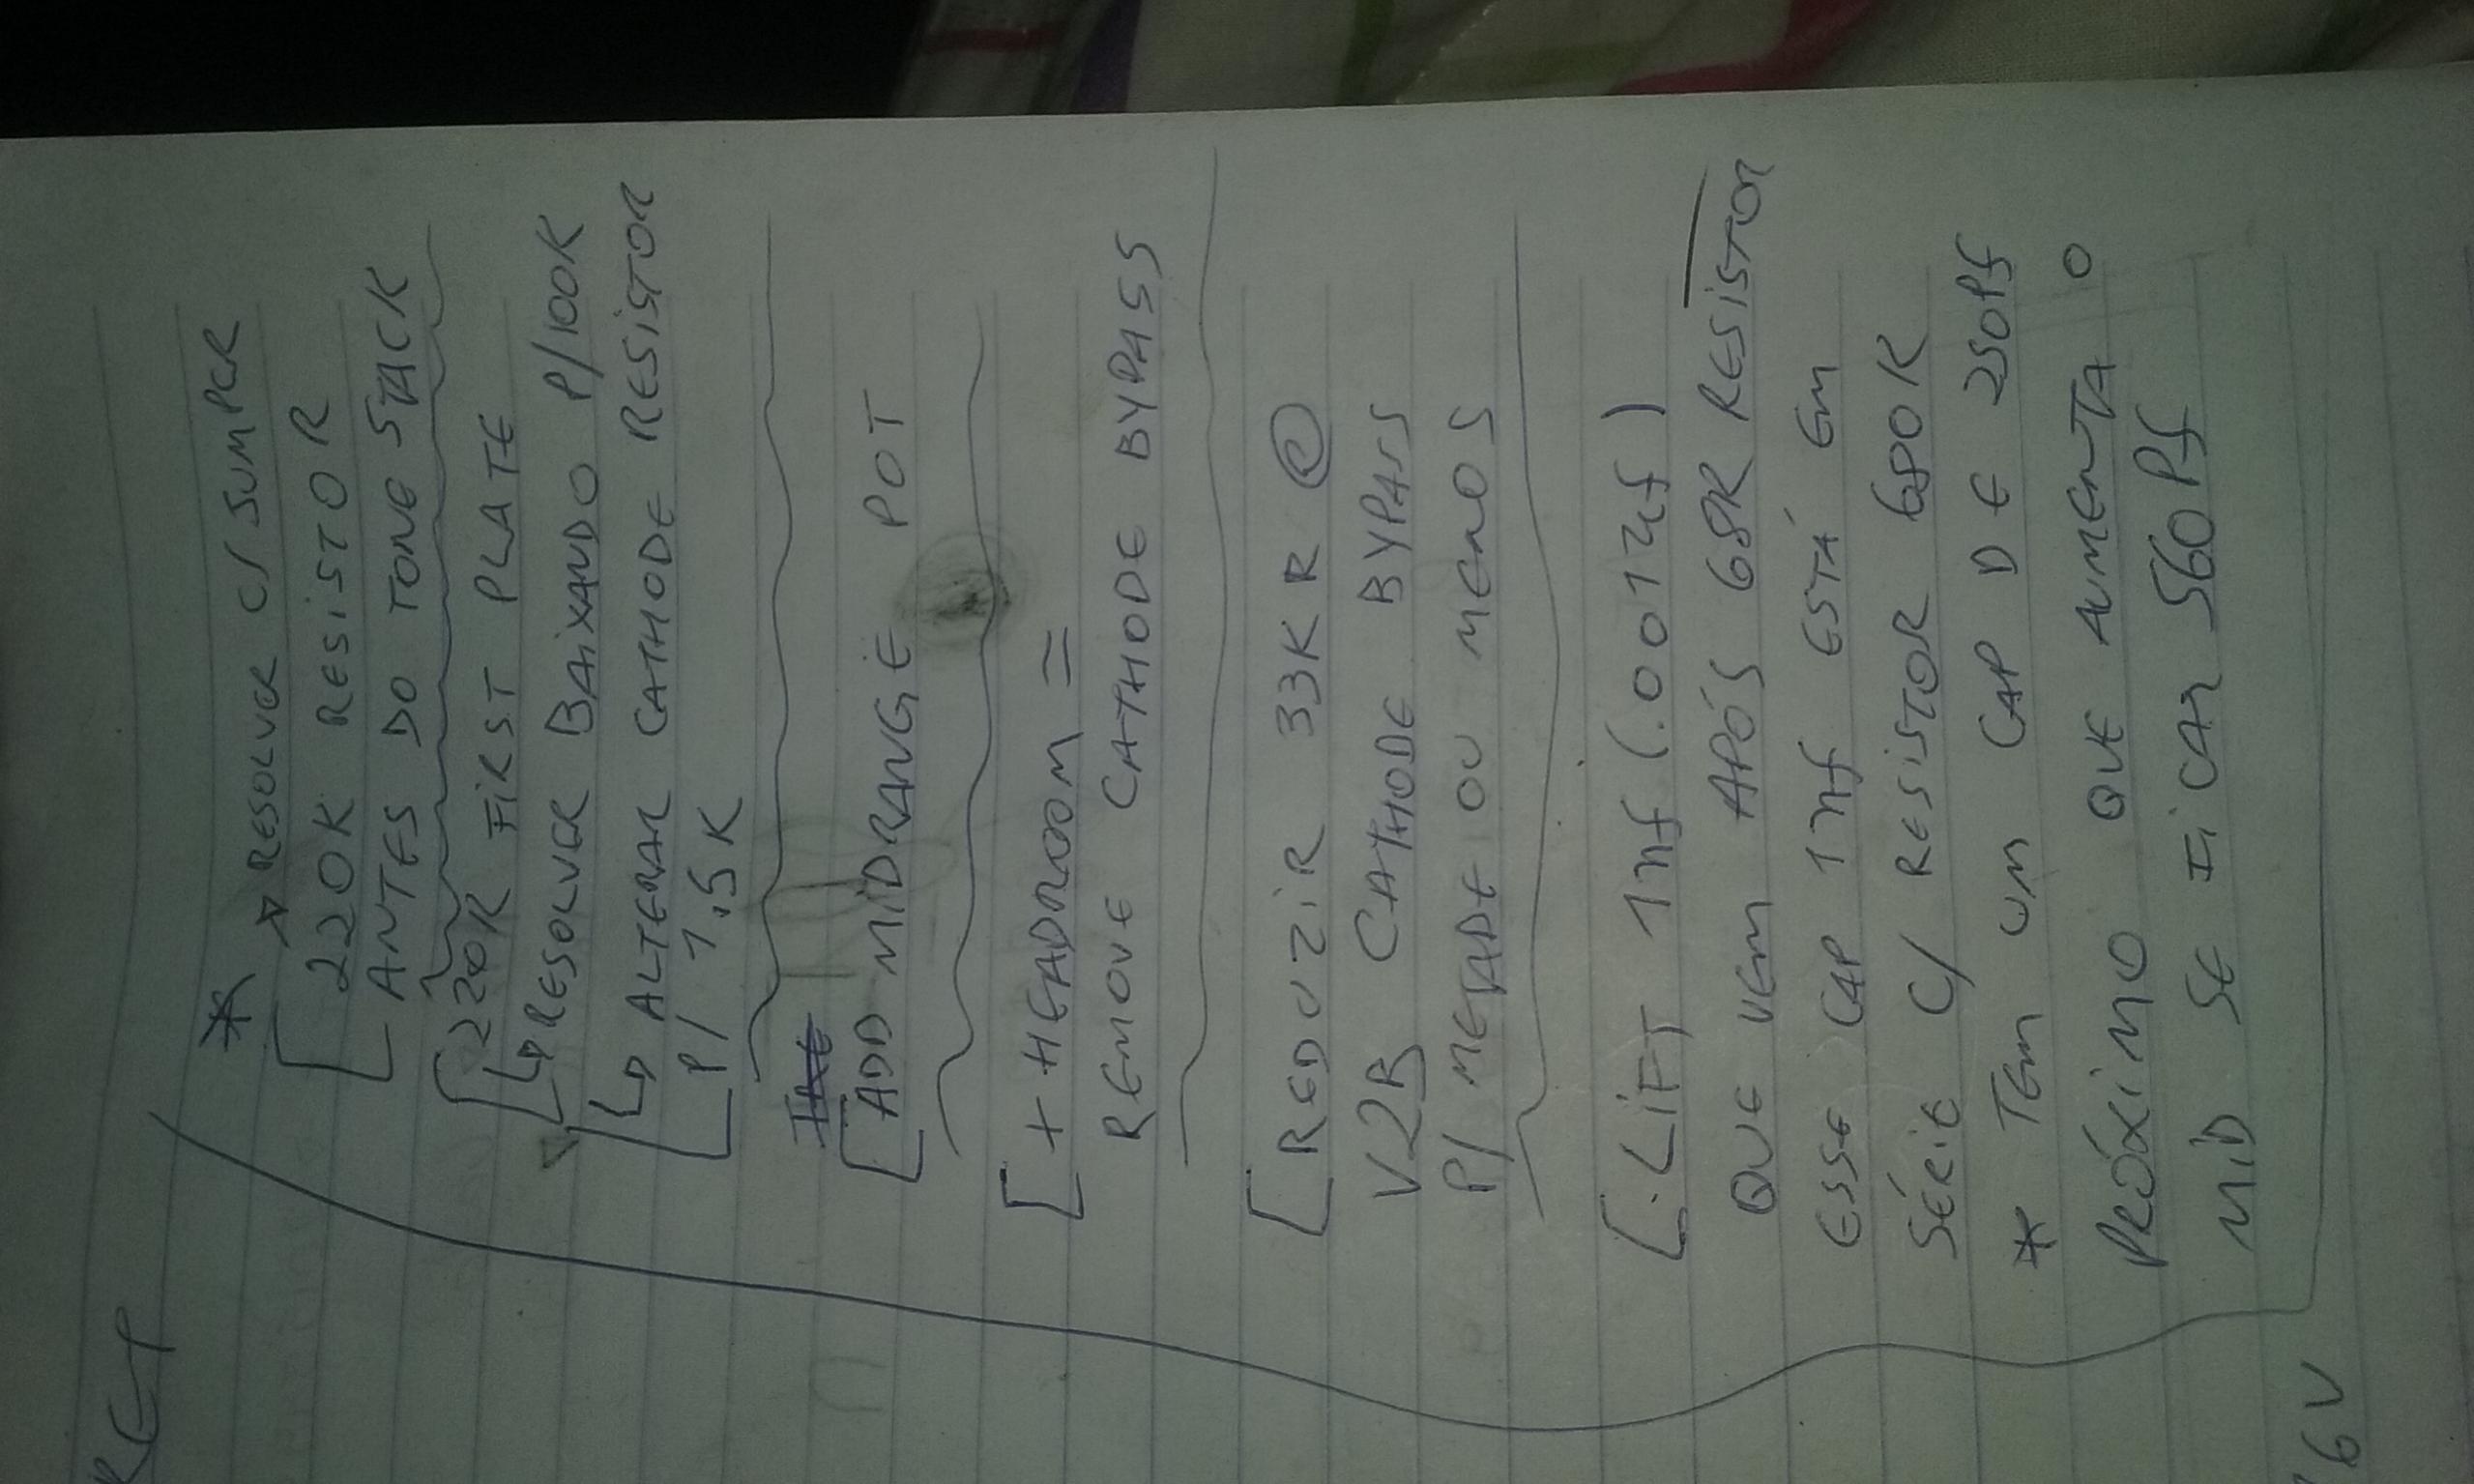 * RESOLVER C/ JUMPER
220K RESISTOR
ANTES DO TONE STACK
220K FIRST PLATE
RESOLVER BAIXANDO P/100K
ALTERAR CATHODE RESISTOR
P/ 1.5K
ADD MIDRANGE POT
+ HEADROOM =
REMOVE CATHODE BYPASS
REDUZIR 33K R @
V2B CATHODE BYPASS
P/ METADE OU MENOS
. LIFT 1nf (.001uf)
QUE VEM APÓS 68R RESISTOR
ESSE CAP 1nf ESTÁ EM
SÉRIE C/ RESISTOR 680K
* TEM UM CAP DE 250Pf
PRÓXIMO QUE AUMENTA O
MID SE FICAR 560Pf
6V